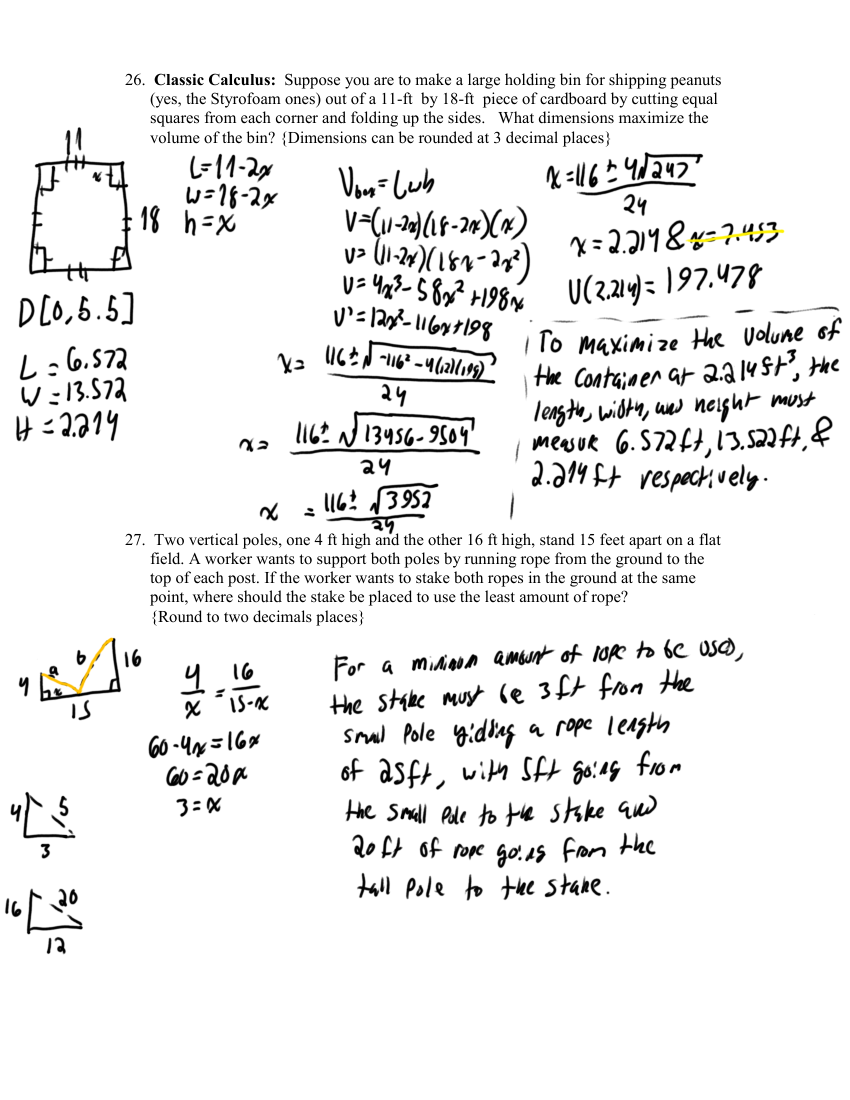 26. Classic Calculus: Suppose you are to make a large holding bin for shipping peanuts
(yes, the Styrofoam ones) out of a 11-ft by 18-ft piece of cardboard by cutting equal
squares from each corner and folding up the sides. What dimensions maximize the
volume of the bin? {Dimensions can be rounded at 3 decimal places}
11
x
18
D[0,5.5]
L = 6.572
W = 13.572
H = 2.214
L=11-2x
W=18-2x
h=x
V_box = Lwh
V=(11-2x)(18-2x)(x)
V=(11-2x)(18x-2x²)
V=4x³-58x²+198x
V'=12x²-116x+198
x= 116±√-116²-4(12)(198)
24
x= 116±√13456-9504
24
x = 116±√3952
24
x=116±4√247
24
x=2.214 & x=7.453
V(2.214)=197.478
To maximize the volume of
the container at 2.214ft³, the
length, width, and height must
measure 6.572ft, 13.522ft, &
2.214ft respectively.
27. Two vertical poles, one 4 ft high and the other 16 ft high, stand 15 feet apart on a flat
field. A worker wants to support both poles by running rope from the ground to the
top of each post. If the worker wants to stake both ropes in the ground at the same
point, where should the stake be placed to use the least amount of rope?
{Round to two decimals places}
4 a b 16
x
15
4 5
3
16 20
12
4/x = 16/15-x
60-4x=16x
60=20x
3=x
For a minimum amount of rope to be used,
the stake must be 3ft from the
small Pole yidling a rope length
of 25ft, with 5ft going from
the small Pole to the stake and
20ft of rope going from the
tall pole to the stake.